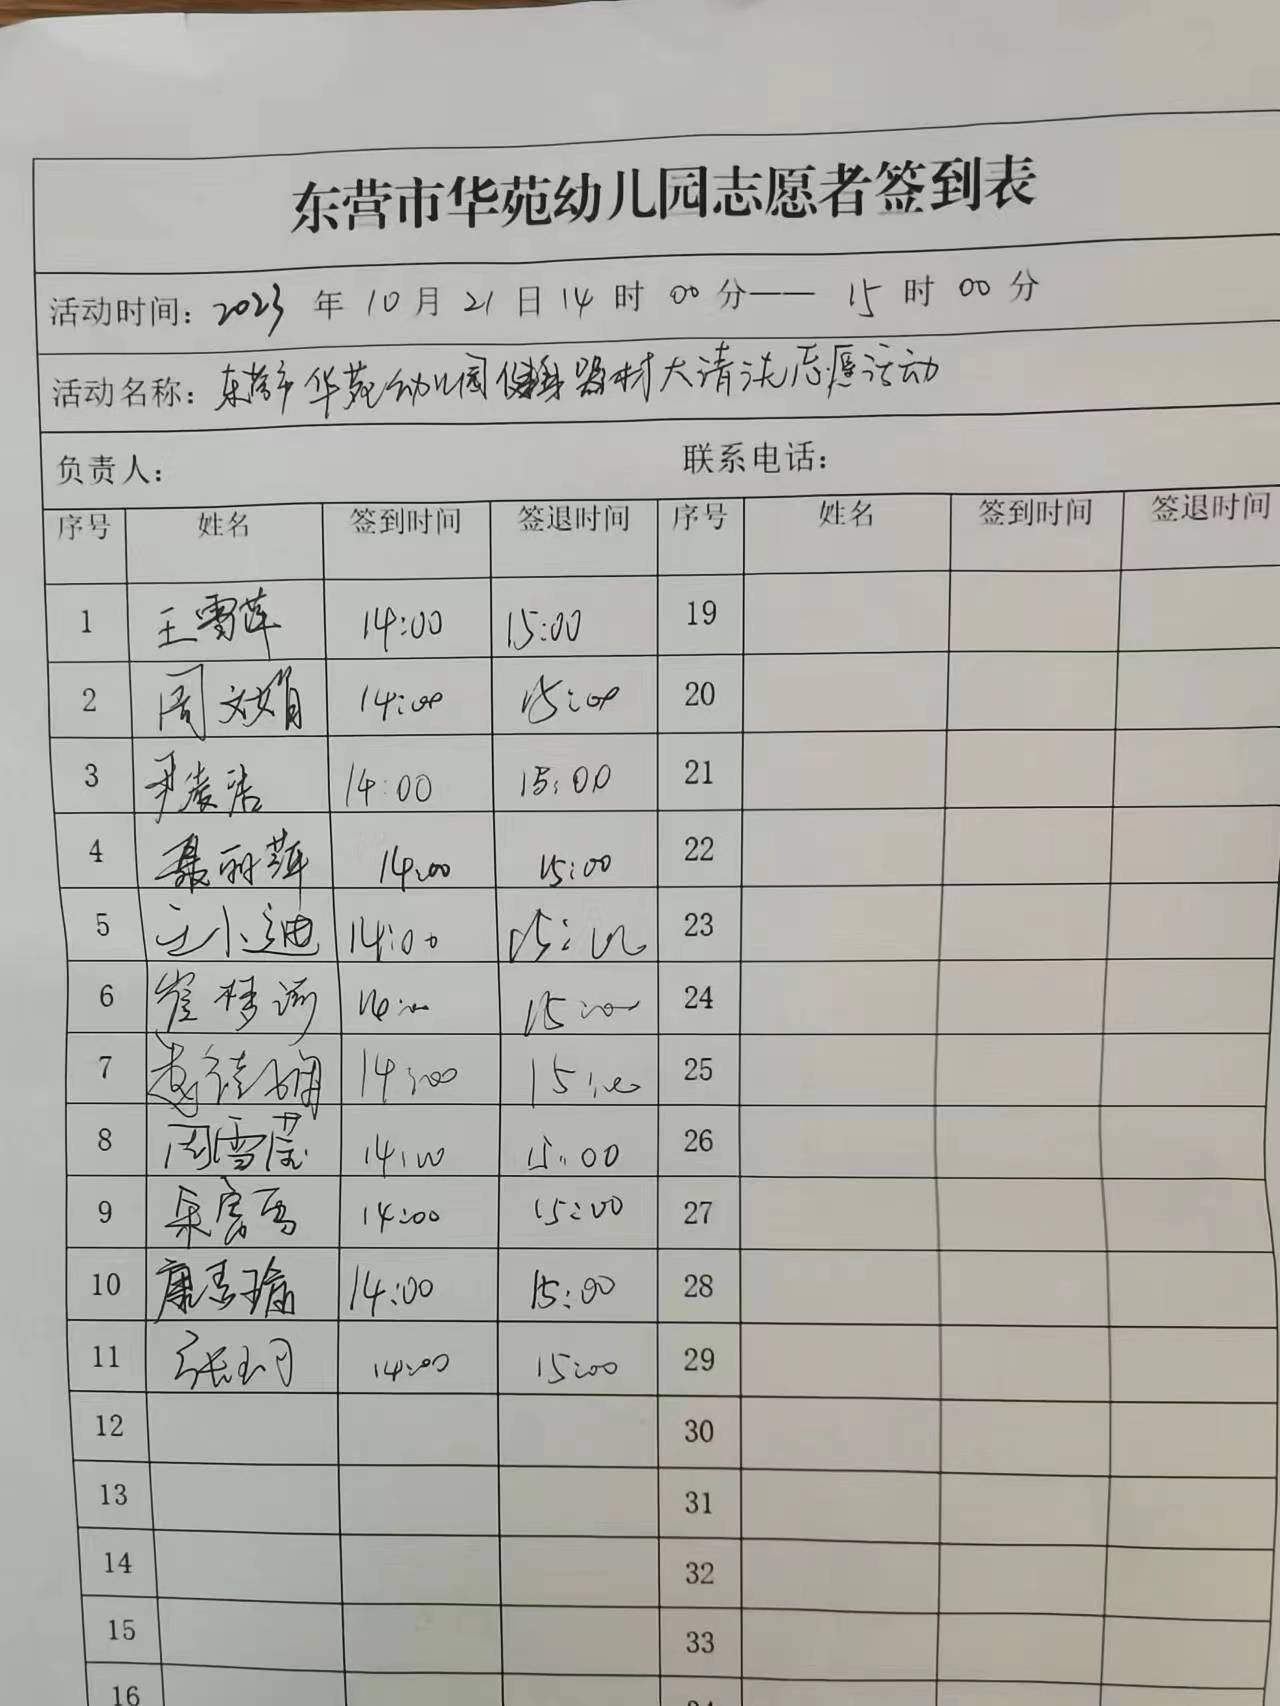 东营市华苑幼儿园志愿者签到表
活动时间：2023 年 10 月 21 日 14 时 00 分—— 15 时 00 分
活动名称：东营市华苑幼儿园健身器材大清洗志愿活动
负责人： 联系电话：
序号 姓名 签到时间 签退时间 序号 姓名 签到时间 签退时间
1 王雪莲 14:00 15:00 19
2 周文娟 14:00 15:00 20
3 14:00 15:00 21
4 聂丽萍 14:00 15:00 22
5 王小迪 14:00 15:00 23
6 崔梦河 14:00 15:00 24
7 14:00 15:00 25
8 周雪莹 14:00 15:00 26
9 14:00 15:00 27
10 康秀瑜 14:00 15:00 28
11 张玥 14:00 15:00 29
12 30
13 31
14 32
15 33
16